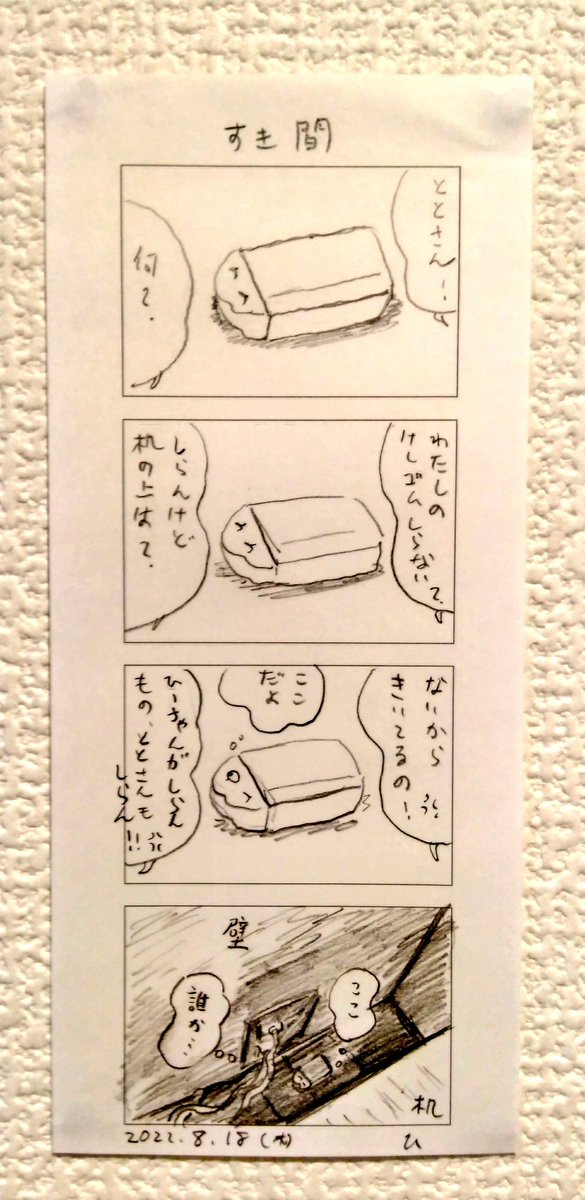 すき間
ととさんー!
何?。
わたしの
けしゴムしらない?。
しらんけど
机の上は?。
ないから
きいてるの!
ここ
だよ
ひーちゃんがしらん
もの、ととさんも
しらん!!
壁
ここ
誰か…
机
2022.8.18(木)
ひ